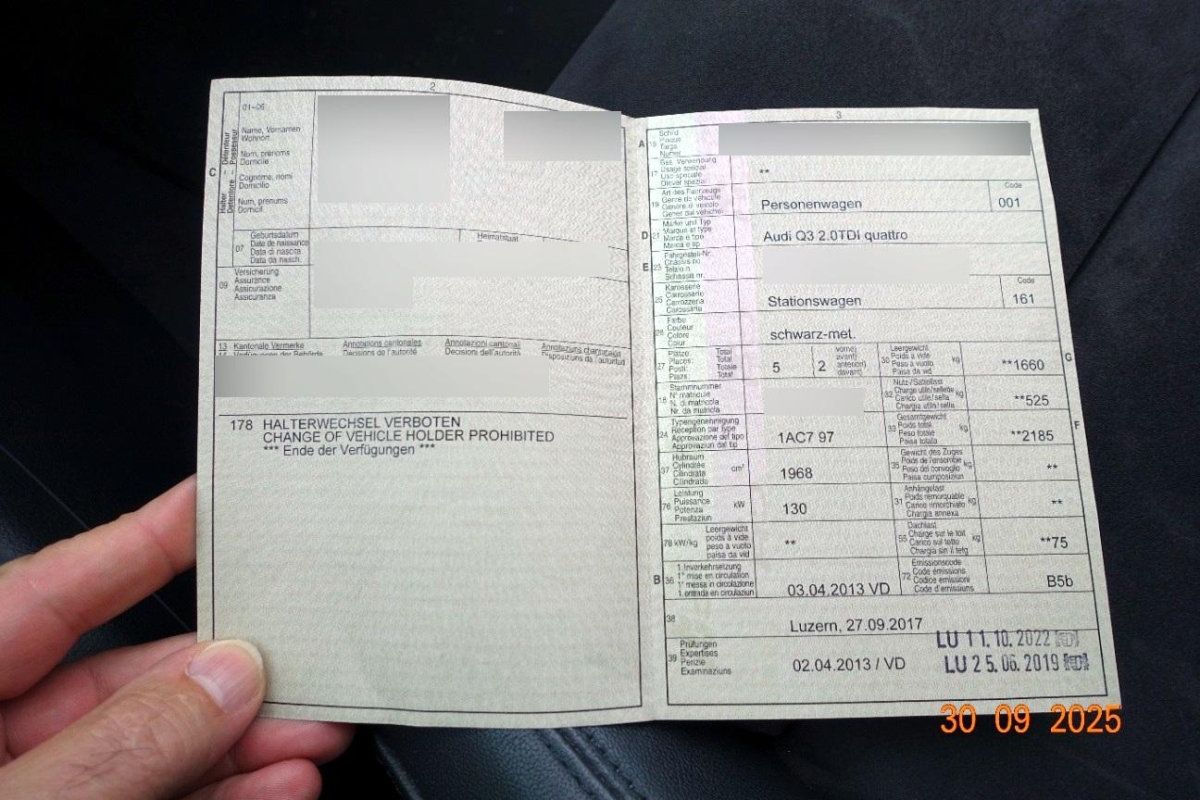 2
01-06
C
Halter Détenteur
Detentore Possessur
Name, Vornamen
Wohnort
Nom, prénoms
Domicile
Cognome, nomi
Domicilio
Num, prenums
Domicil
07
Geburtsdatum
Date de naissance
Data di nascita
Data da nasch.
Heimatstaat
09
Versicherung
Assurance
Assicurazione
Assicuranza
13 Kantonale Vermerke
Annotations cantonales
Annotazioni cantonali
Annotaziuns chantunalas
Verfügungen der Behörde
Décisions de l'autorité
Decisioni dell'autorità
Disposiziuns da l'autoritad
178 HALTERWECHSEL VERBOTEN
CHANGE OF VEHICLE HOLDER PROHIBITED
*** Ende der Verfügungen ***
3
A 15
Schild
Plaque
Targa
Numer
17
Bes. Verwendung
Usage spécial
Uso speciale
Diever spezial
**
19
Art des Fahrzeugs
Genre de véhicule
Genere di veicolo
Gener dal vehichel
Personenwagen
Code
001
D 21
Marke und Typ
Marque et type
Marca e tipo
Marca e tip
Audi Q3 2.0TDI quattro
E 23
Fahrgestell-Nr.
Châssis no
Telaio n.
Schassis nr.
25
Karosserie
Carrosserie
Carrozzeria
Carossaria
Stationswagen
Code
161
26
Farbe
Couleur
Colore
Colur
schwarz-met.
27
Plätze Total
Places: Total
Posti: Totale
Plazs: Total
5
2
vorne)
avant)
anteriori)
davant)
30
Leergewicht
Poids à vide
Peso a vuoto
Paisa da vid
kg
**1660
G
18
Stammnummer
N° matricule
N. di matricola
Nr. da matricla
32
Nutz-/Sattellast
Charge utile/sellette
Carico utile/sella
Chargia utila/sella
kg
**525
24
Typengenehmigung
Réception par type
Approvazione del tipo
Approvaziun dal tip
1AC7 97
33
Gesamtgewicht
Poids total
Peso totale
Paisa totala
kg
**2185
F
37
Hubraum
Cylindrée
Cilindrata
Cilindrada
cm³
1968
35
Gewicht des Zuges
Poids de l'ensemble
Peso del convoglio
Paisa cumposiziun
kg
**
76
Leistung
Puissance
Potenza
Prestaziun
kW
130
31
Anhängelast
Poids remorquable
Carico rimorchiato
Chargia annexa
kg
**
78 kW/kg
Leergewicht
poids à vide
peso a vuoto
paisa da vid
**
55
Dachlast
Charge sur le toit
Carico sul tetto
Chargia sin il tetg
kg
**75
B 36
1. Inverkehrsetzung
1re mise en circulation
1a messa in circolazione
1. entrada en circulaziun
03.04.2013 VD
72
Emissionscode
Code émissions
Codice emissioni
Code d'emissiuns
B5b
38
Luzern, 27.09.2017
39
Prüfungen
Expertises
Perizie
Examinaziuns
02.04.2013 / VD
LU 11.10.2022
LU 25.06.2019
30 09 2025